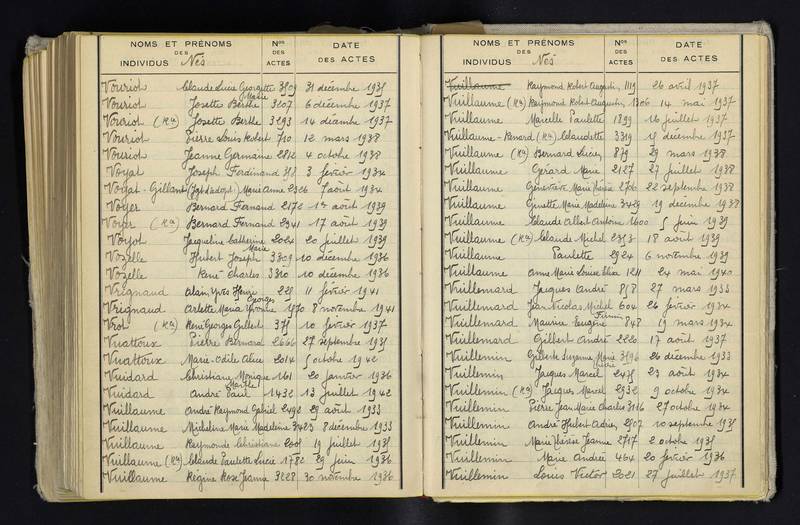 NOMS ET PRÉNOMS
DES
INDIVIDUS Nés
Nos
DES
ACTES
DATE
DES ACTES
Vouriot Claude Lucie Georgette 3509 31 décembre 1935
Vouriot Josette Berthe Marie 3207 6 décembre 1937
Vouriot (Rca) Josette Berthe 3293 14 décembre 1937
Vouriot Pierre Louis Robert 710 12 mars 1938
Vouriot Jeanne Germaine 2812 4 octobre 1938
Voyat Joseph Ferdinand 318 3 février 1934
Voyat-Gillant Marie Anne 2326 7 août 1934
Voyer Bernard Fernand 2172 1er août 1939
Voyer (Rca) Bernard Fernand 2341 17 août 1939
Voyot Jacqueline Catherine 2021 20 juillet 1939
Vozelle Hubert Joseph Marie 3309 10 décembre 1936
Vozelle René Charles 3310 10 décembre 1936
Vrignaud Alain Yves Henri 229 11 février 1941
Vrignaud Arlette Maria Yvonne Georges 1170 8 novembre 1941
Vrot (Rca) René Georges Gilbert 375 10 février 1937
Vuattoux Pierre Bernard 2666 27 septembre 1935
Vuattoux Marie-Odile Alice 2014 5 octobre 1942
Vuidard Christiane Monique 161 20 janvier 1936
Vuidard André Paul 1432 13 juillet 1942
Vuillaume André Raymond Gabriel 2492 29 août 1933
Vuillaume Micheline Marie Madeleine 3423 8 décembre 1933
Vuillaume Raymonde Christiane 2005 19 juillet 1935
Vuillaume (Rca) Claude Paulette Lucie 1782 29 juin 1936
Vuillaume Régine Rose Jeanne 3228 30 novembre 1936
NOMS ET PRÉNOMS
DES
INDIVIDUS Nés
Nos
DES
ACTES
DATE
DES ACTES
Vuillaume Raymond Robert Augustin 1119 26 avril 1937
Vuillaume (Rca) Raymond Robert Augustin 1306 14 mai 1937
Vuillaume Marcelle Paulette 1899 16 juillet 1937
Vuillaume-Renard (Rca) Claudette 3319 15 décembre 1937
Vuillaume (Rca) Bernard Lucien 879 29 mars 1938
Vuillaume Gérard Marie 2127 27 juillet 1938
Vuillaume Geneviève Marie Thérèse 2700 22 septembre 1938
Vuillaume Ginette Marie Madeleine 3429 19 décembre 1938
Vuillaume Claude Albert Antoine 1600 5 juin 1939
Vuillaume (Rca) Claude Michel 2353 18 août 1939
Vuillaume Paulette 2924 6 novembre 1939
Vuillaume Anne Marie Louise 1211 24 mai 1940
Vuillemard Jacques André 858 27 mars 1933
Vuillemard Jean Nicolas Michel 604 26 février 1934
Vuillemard Maurice Eugène Firmin 848 19 mars 1934
Vuillemard Gilbert André 2220 17 août 1937
Vuillemin Gilberte Suzanne Marie 3596 26 décembre 1933
Vuillemin Jacques Marcel 2475 23 août 1934
Vuillemin (Rca) Jacques Marcel 2932 9 octobre 1934
Vuillemin Pierre Jean Marie Charles 3116 27 octobre 1934
Vuillemin André Hubert Adrien 2507 10 septembre 1935
Vuillemin Marie Thérèse Jeanne 2717 2 octobre 1935
Vuillemin Marie Andrée 464 20 février 1936
Vuillemin Louis Victor 2021 27 juillet 1937